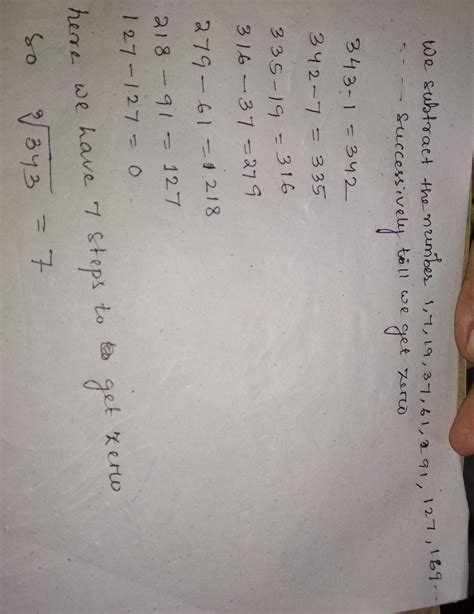 We subtract the number 1,7,19,37,61,91,127,169...
---- Successively till we get zero
343-1 = 342
342-7 = 335
335-19 = 316
316-37 = 279
279-61 = 218
218-91 = 127
127-127 = 0
here we have 7 steps to get zero
so ∛343 = 7